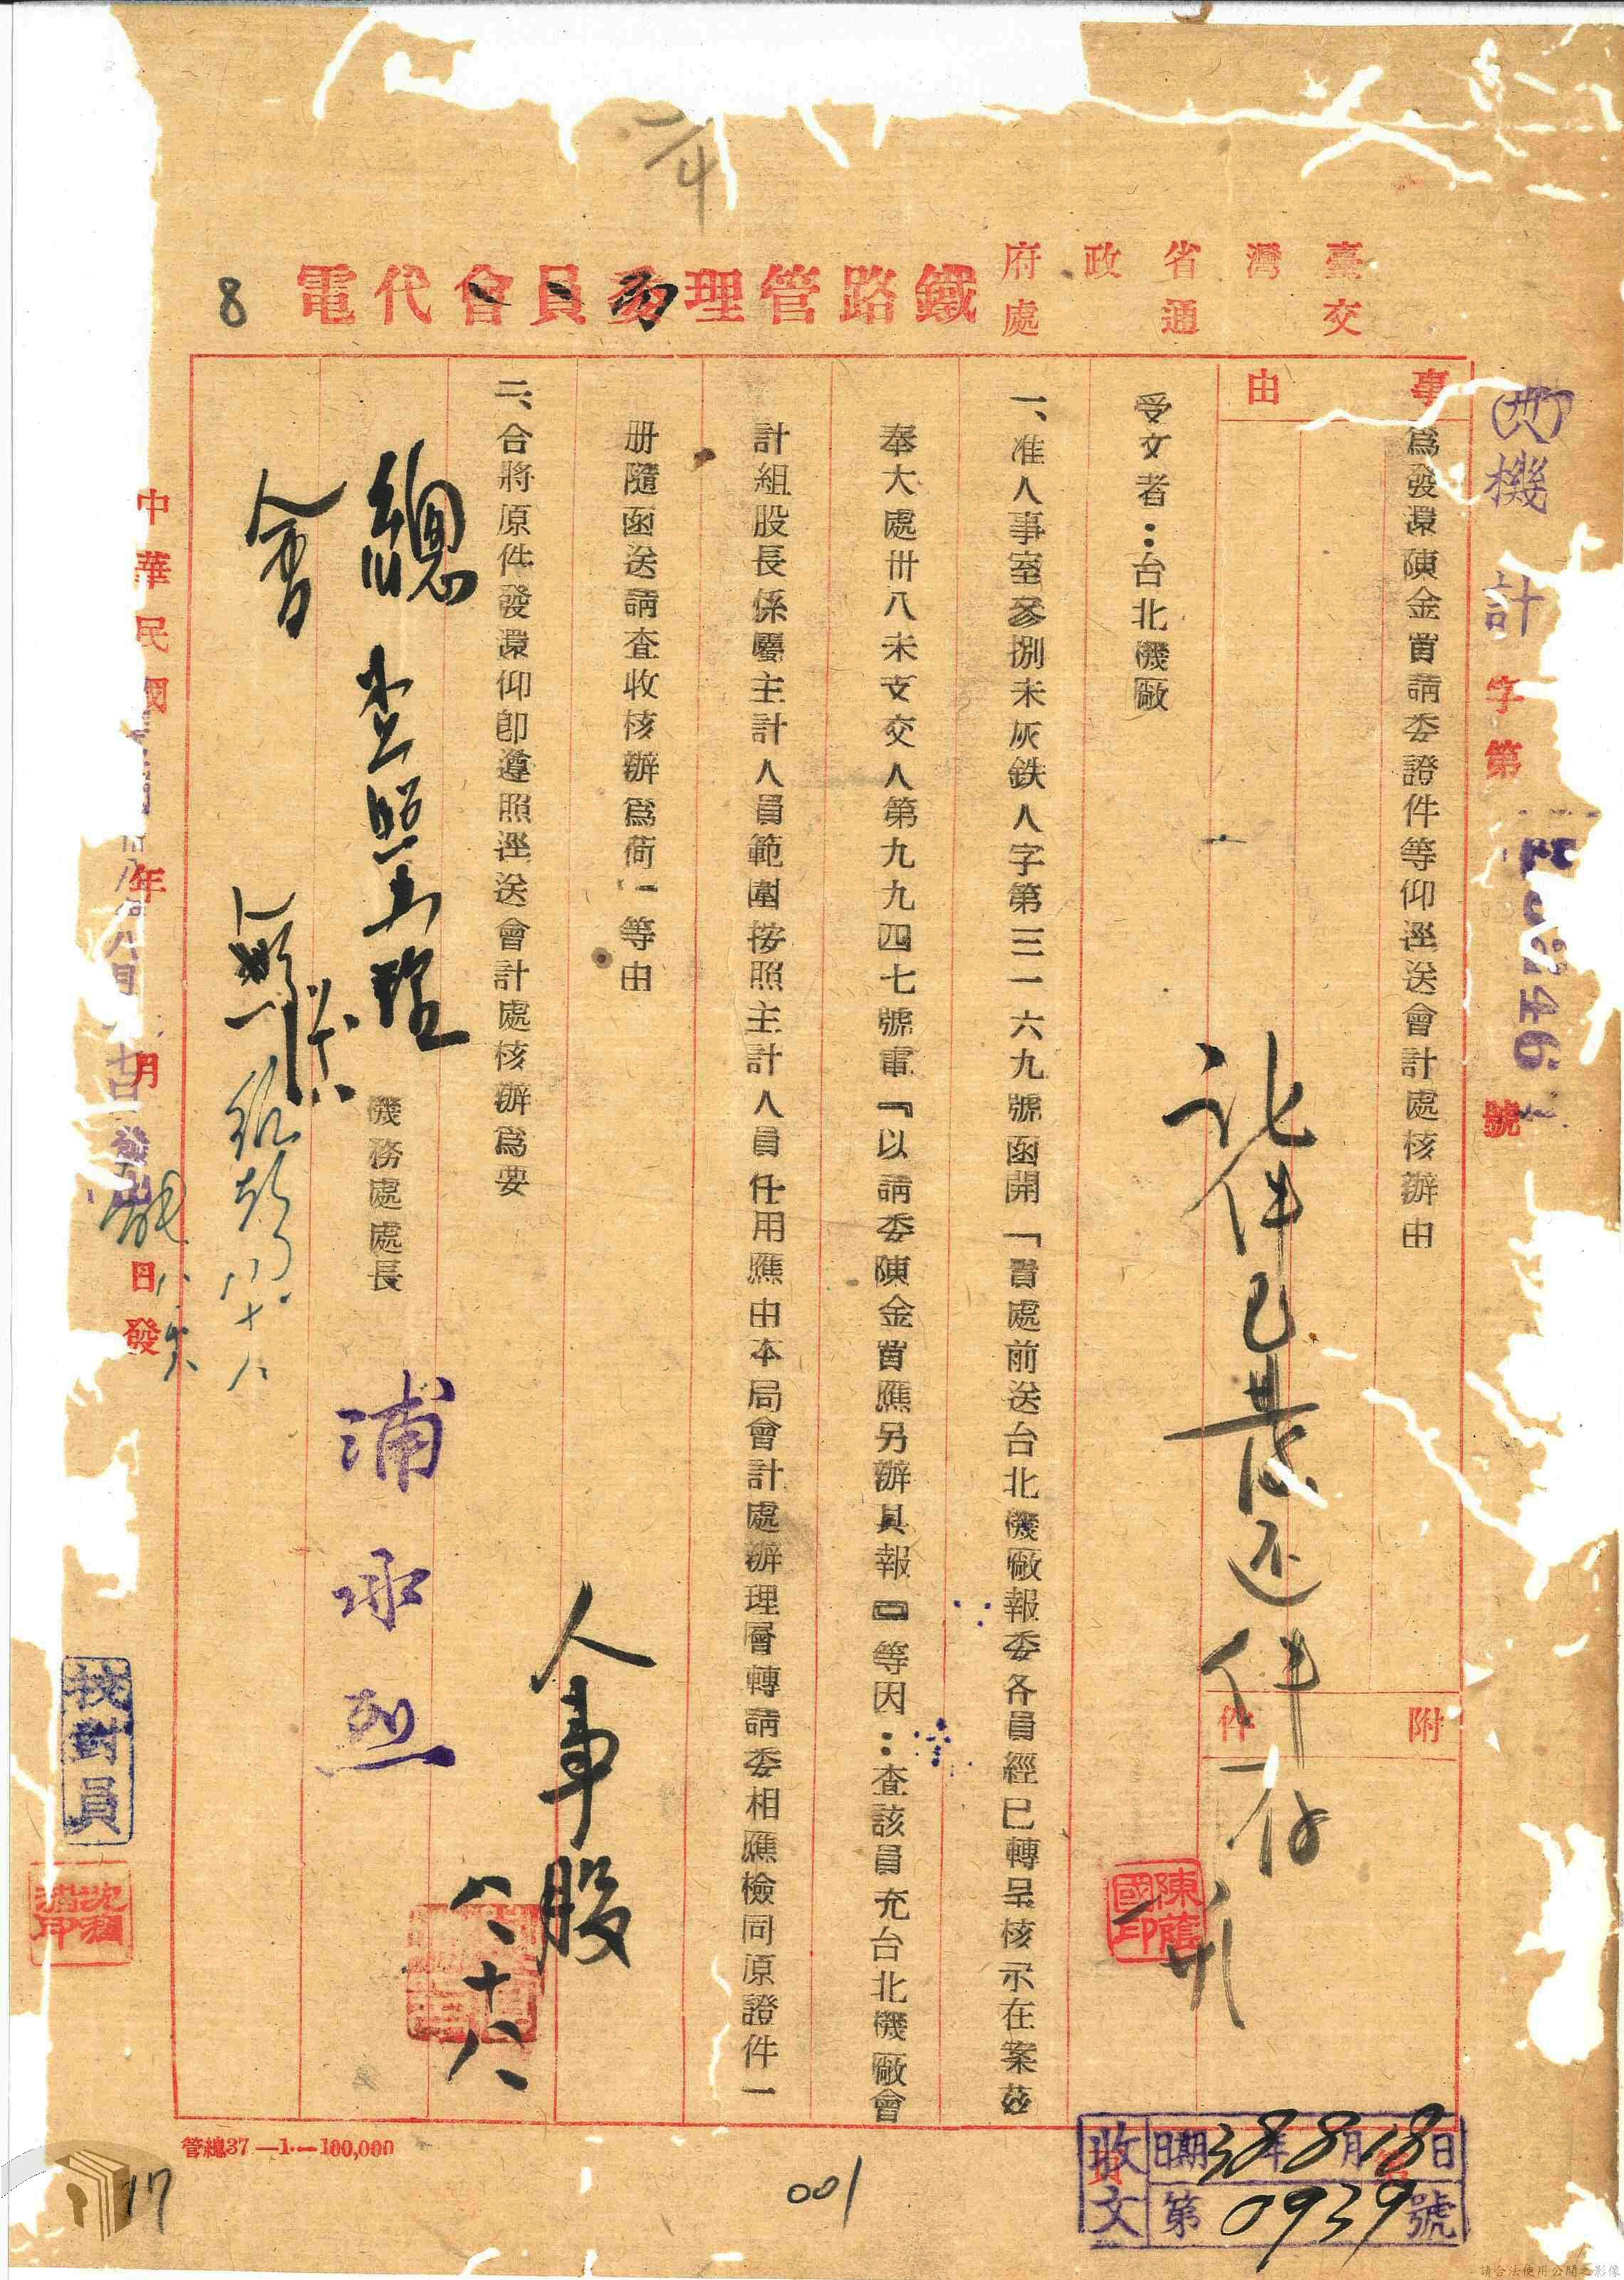 臺灣省政府
交通處
鐵路管理委員會代電
8
(卅八)機計字第
246
號
事由
為發還陳金買請委證件等仰逕送會計處核辦由
附件
受文者：台北機廠
一、准人事室參捌未灰鉄人字第三一六九號函開「貴處前送台北機廠報委各員經已轉呈核示在案茲
奉大處卅八未支交人第九九四七號電『以請委陳金買應另辦具報』等因：查該員充台北機廠會
計組股長係屬主計人員範圍按照主計人員任用應由本局會計處辦理層轉請委相應檢同原證件一
册隨函送請查收核辦為荷」等由
二、合將原件發還仰卽遵照逕送會計處核辦為要
機務處處長
浦承烈
證件已發还件存
陳
國印
人事股
八、十八
總
查照
會
中華民國卅八年八月 日發
校對員
沈
印
管總37—1.—100,000
001
17
收文
日期38年8月18日
第0939號
請合法使用公開之影像